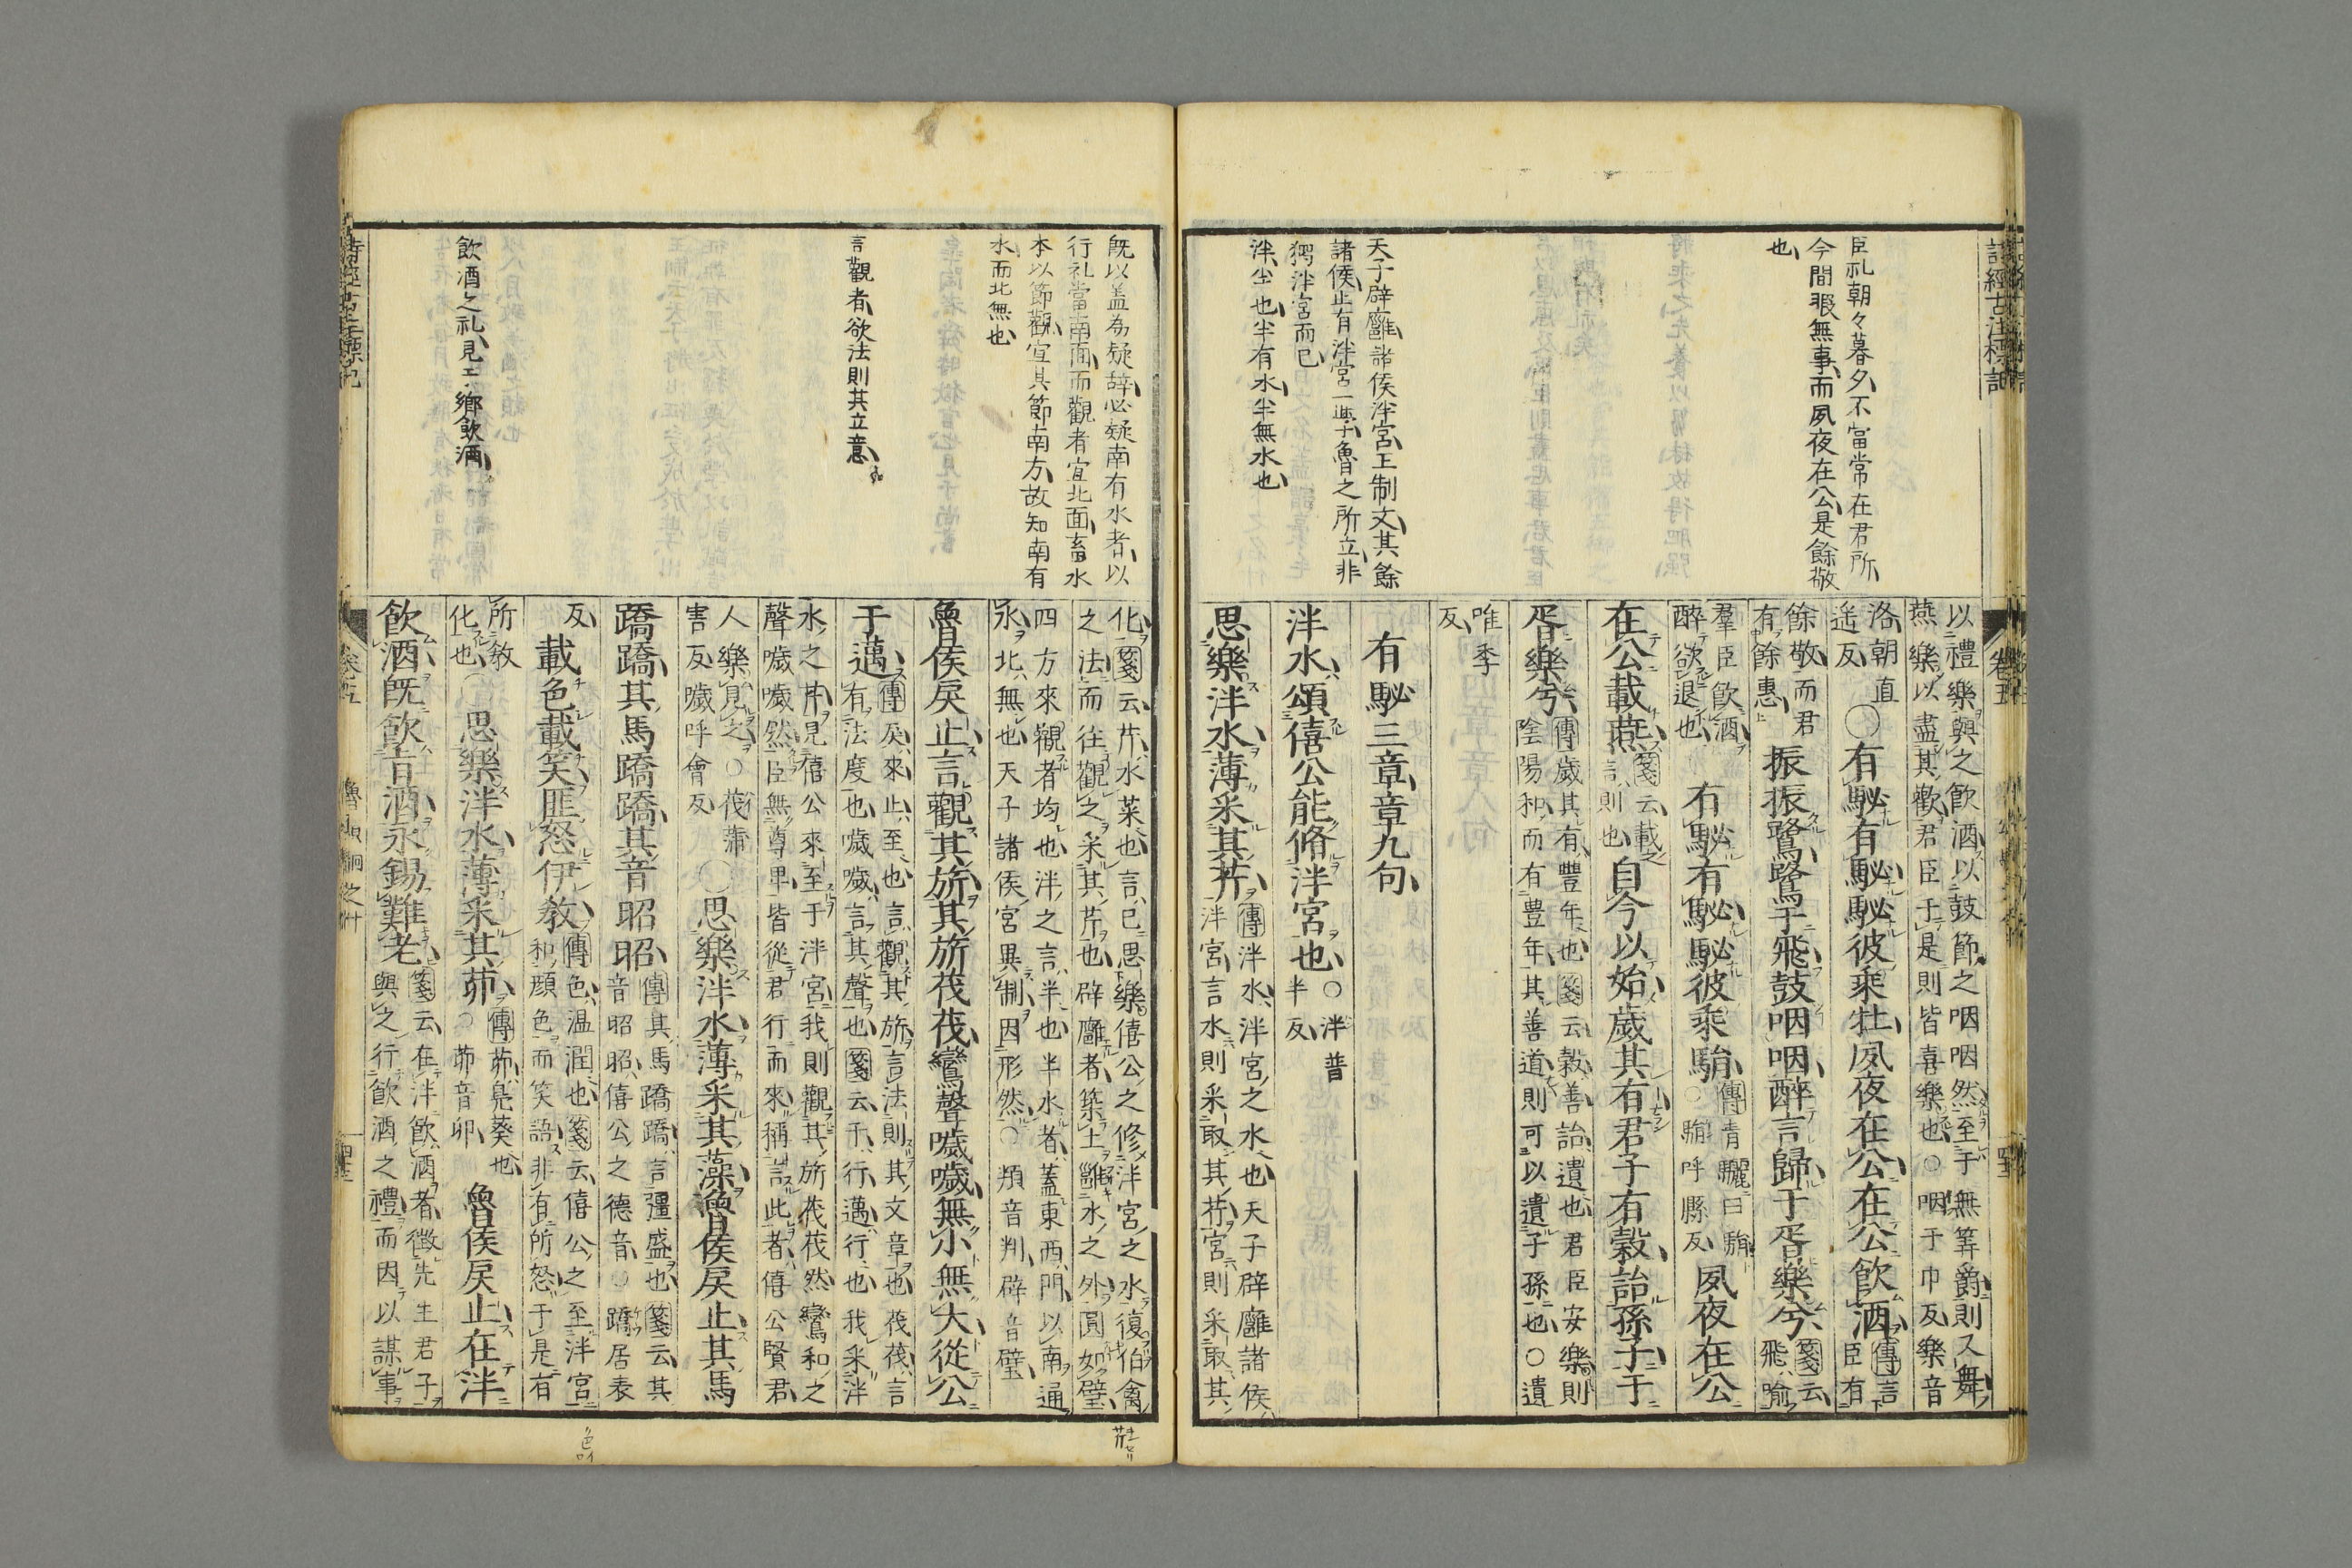 詩經古注標記
卷五
臣礼朝々暮夕不當常在君所
今間暇無事而夙夜在公是餘敬
也
天子辟廱諸侯泮宮王制文其餘
諸侯止有泮宮一學魯之所立非
獨泮宮而已
泮尘也半有水半無水也
以禮樂與之飲酒以鼓節之咽咽然至于無筭爵則又舞
燕樂以盡其歡君臣于是則皆喜樂也○咽于巾反樂音
洛朝直
遥反○有駜有駜駜彼乘牡夙夜在公在公飲酒傳言
臣有
餘敬而君
有餘惠振振鷺鷺于飛鼓咽咽醉言歸于胥樂兮箋云
飛喻
羣臣飲酒
醉欲退也有駜有駜駜彼乘駽傳青驪曰駽
○駽呼縣反夙夜在公
在公載燕箋云載之
言則也自今以始歲其有君子有穀詒孫子于
胥樂兮傳歲其有豐年也箋云穀善詒遺也君臣安樂則
陰陽和而有豊年其善道則可以遺子孫也○遺
唯季
反
有駜三章章九句
泮水頌僖公能脩泮宮也○泮普
半反
思樂泮水薄采其芹傳泮水泮宮之水也天子辟廱諸侯
泮宮言水則采取其芹宮則采取其
既以蓋為疑辞必疑南有水者以
行礼當南面而觀者宜北面畜水
本以節觀宜其節南方故知南有
水而北無也
言觀者欲法則其立意
飲酒之礼見工鄉飲酒
化箋云芹水菜也言已思樂僖公之修泮宮之水復伯禽
之法而往觀之采其芹也辟廱者築土雝水之外圓如璧
四方來觀者均也泮之言半也半水者蓋東西門以南通
水北無也天子諸侯宮異制因形然○頖音判辟音璧
魯侯戾止言觀其旂其旂茷茷鸞聲噦噦無小無大從公
于邁傳戾來止至也言觀其旂言法則其文章也茷茷言
有法度也噦噦言其聲也箋云于行邁行也我采泮
水之芹見僖公來至于泮宮我則觀其旂茷茷然鸞和之
聲噦噦然臣無尊卑皆從君行而來稱言此者僖公賢君
人樂見之○茷蒲
害反噦呼會反○思樂泮水薄采其藻魯侯戾止其馬
蹻蹻其馬蹻蹻其音昭昭傳其馬蹻蹻言彊盛也箋云其
音昭昭僖公之德音○蹻居表
反載色載笑匪怒伊教傳色温潤也箋云僖公之至泮宮
和顔色而笑語非有所怒于是有
所教
化也○思樂泮水薄采其茆傳茆鳧葵也
○茆音卯魯侯戾止在泮
飲酒既飲旨酒永錫難老箋云在泮飲酒者徵先生君子
與之行飲酒之禮而因以謀事
卷五